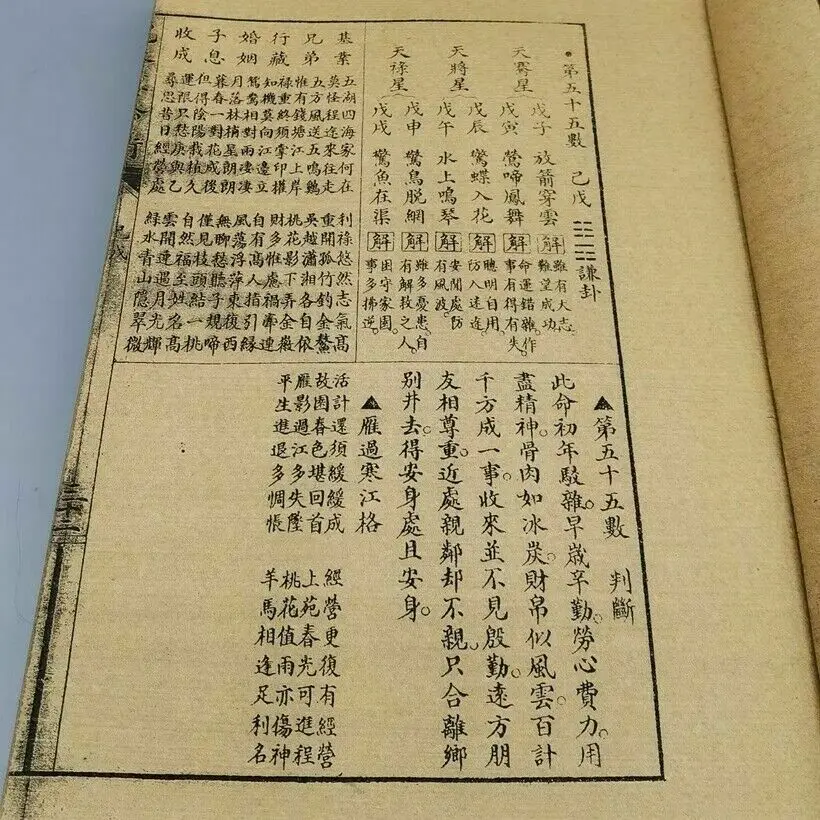 第五十五數 己戊 ䷎ 謙卦
天騫星
戊子 放箭穿雲 解 雖有大志難望成功。
戊寅 鶯啼鳳舞 解 命運錯雜作事有得有失。
天將星
戊辰 驚蝶入花 解 聰明自用防入迷途。
戊午 水上鳴琴 解 安閒處防有風波。
天祿星
戊申 驚鳥脫網 解 雖多憂患自有解救之人。
戊戌 驚魚在渠 解 困守家園事多拂逆。
基業
五湖四海家何在 利祿悠然志氣高
莫怪程途來往走 重開孤竹釣金鰲
兄弟
五方風送五鳴鷄 吳越瀟湘各自依
惟有錢塘江上岸 桃花影下弄金徽
行藏
祿重終須掌印權 財多惟處禍牽連
知機莫向江邊立 自有高人指引緣
婚姻
鴛鴦相對兩淒淒 風蕩浮萍東復西
月落林梢星朗朗 無聊愁聽子規啼
子息
暮春一對花成後 僅見枝頭結一桃
但得陰陽栽植久 自然福至姓名高
收成
運限只愁庚與乙 雲開運遇月光輝
尋思昔日經營處 綠水青山隱翠微
第五十五數 判斷
此命初年駁雜。早歲辛勤。勞心費力。用
盡精神。骨肉如冰炭。財帛似風雲。百計
千方成一事。收來並不見殷勤。遠方朋
友相尊重。近處親鄰却不親。只合離鄉
別井去。得安身處且安身。
雁過寒江格
活計還須緩緩成 經營更復有經營
故園春色堪回首 上苑春光可進程
雁影過江多失墜 桃花值雨亦傷神
平生進退多惆悵 羊馬相逢足利名
三十二